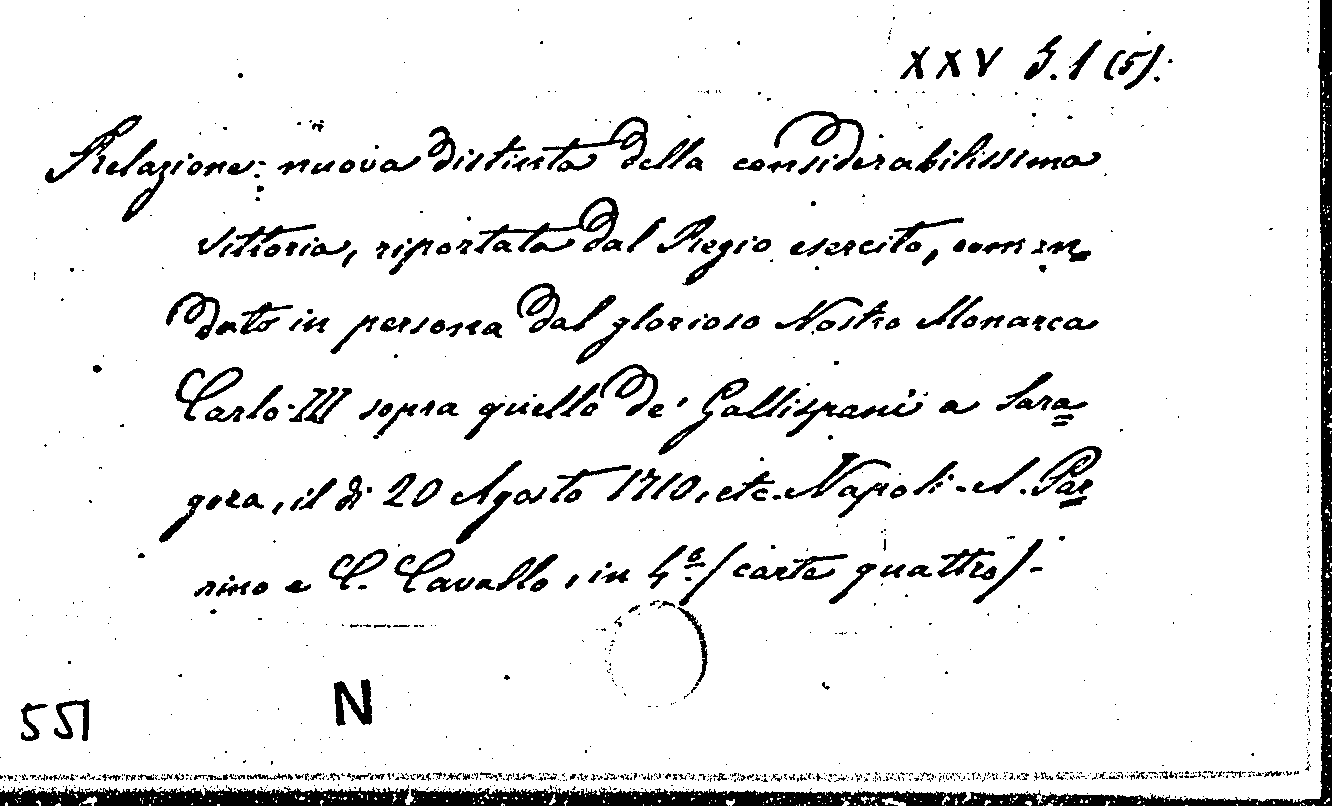 XXV G.1 (5).
Relazione: nuova distinta della considerabilissima
vittoria, riportata dal Regio esercito, coman=
dato in persona dal glorioso Nostro Monarca
Carlo III sopra quello de' Gallispani a Sara=
goza, il dì 20 Agosto 1710, etc. Napoli - A. Par=
rino e C. Cavallo, in 4.º / carte quattro / -
N
551